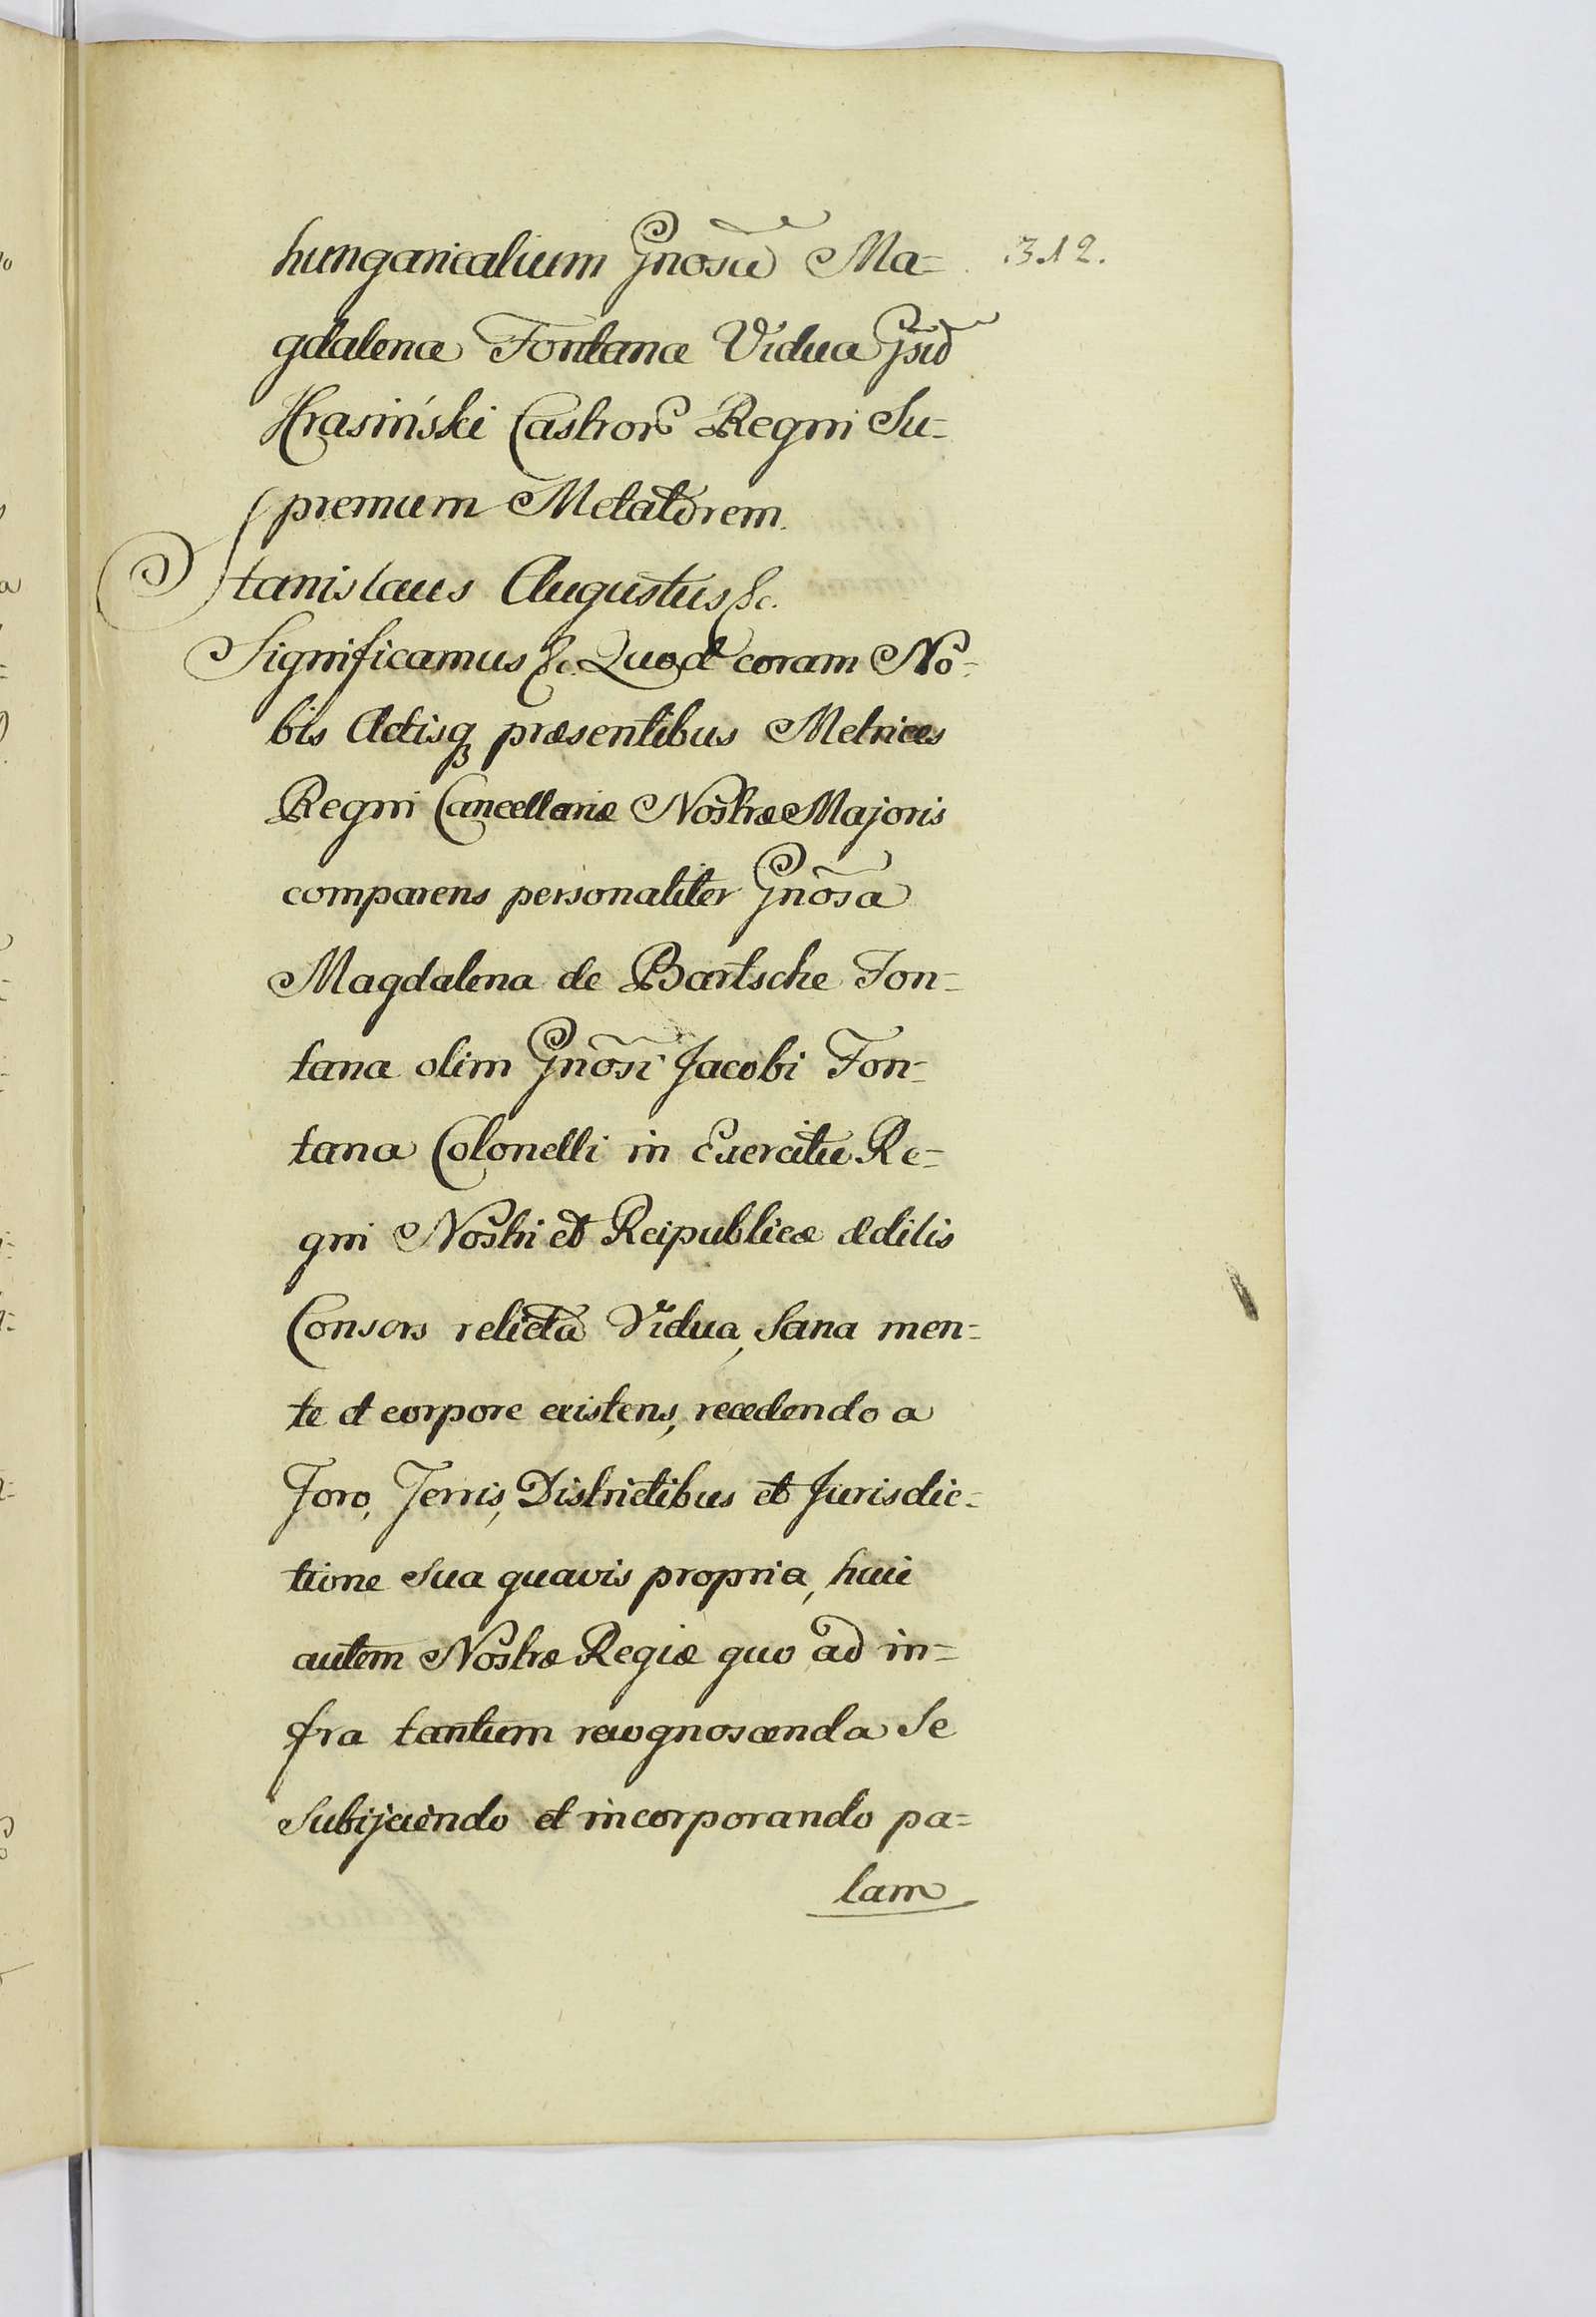 hungaricalium Gnosæ Ma=
312.
gdalenæ Fontana Vidua Gsid
Krasiński Castror Regni Su=
premum Metatorem.
Stanislaus Augustus &c.
Significamus &c. Quod coram No=
bis Actisq præsentibus Metrices
Regni Cancellariæ Nostræ Majoris
comparens personaliter Gnõsa
Magdalena de Bartsche Fon=
tana olim Gnõsi Jacobi Fon=
tana Colonelli in Exercitu Re=
gni Nostri et Reipublicæ ædilis
Consors relicta Vidua, Sana men=
te et corpore existens, recedendo a
Foro, Terris, Districtibus et Jurisdic=
tione Sua quavis propria, huic
autem Nostræ Regiæ quo ad in=
fra tantum recognoscenda Se
Subijciendo et incorporando pa=
lam